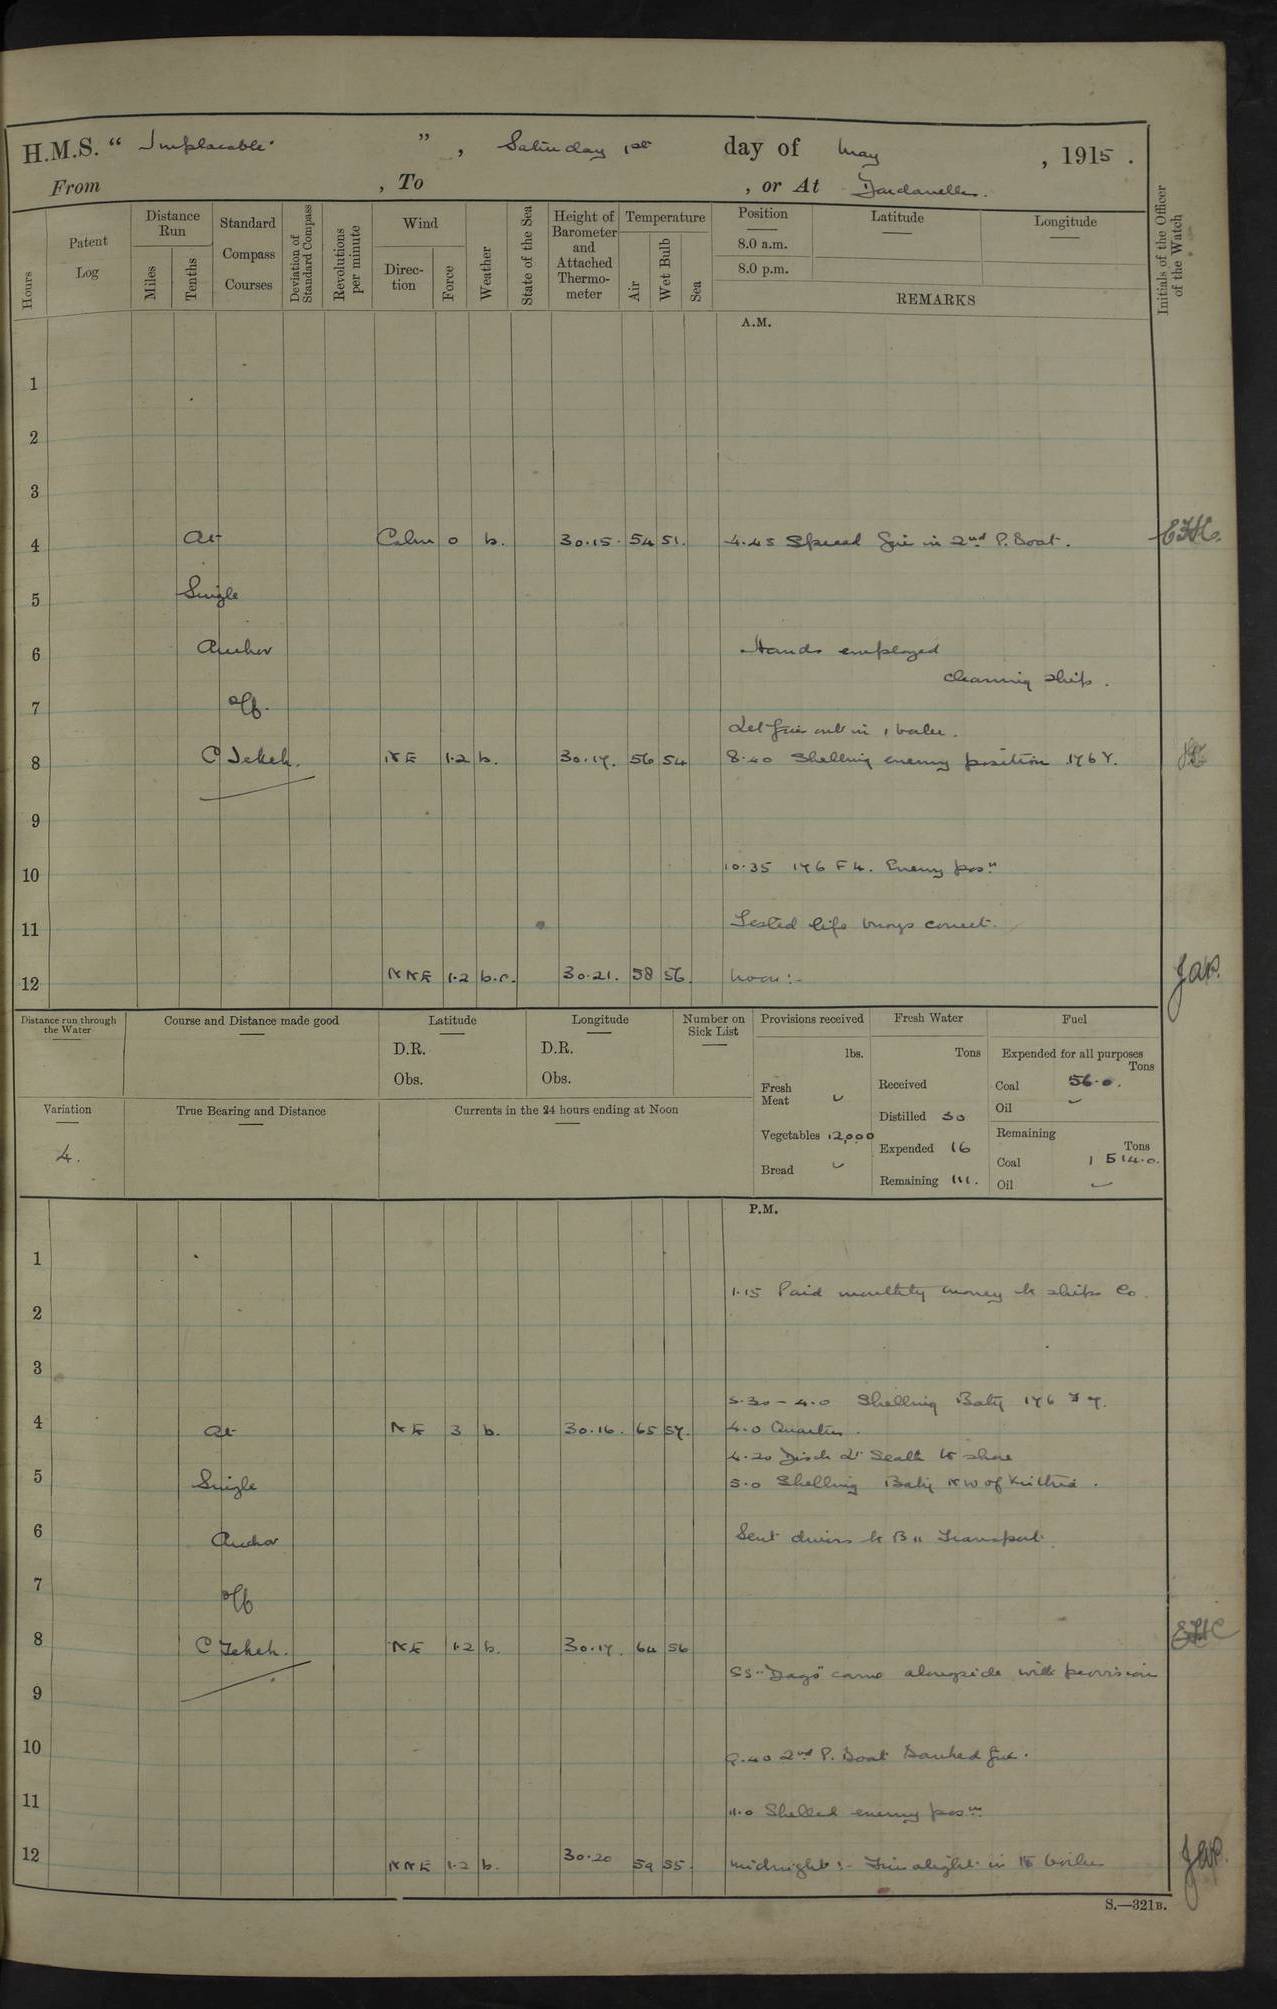 H.M.S. " Implacable ", Saturday 1st day of May, 1915.
From , To , or At Dardanelles.
Hours
Patent Log
Distance Run
Miles
Tenths
Standard Compass Courses
Deviation of Standard Compass
Revolutions per minute
Wind
Direction
Force
Weather
State of the Sea
Height of Barometer and Attached Thermometer
Temperature
Air
Wet Bulb
Sea
Position
8.0 a.m.
8.0 p.m.
Latitude
Longitude
REMARKS
Initials of the Officer of the Watch
A.M.
1
2
3
4 At Calm 0 b. 30.15. 54 51. 4.45 Spread fire in 2nd P. Boat.
5 Single
6 Anchor Hands employed
cleaning ship.
7 off.
Let fires out in 1 boiler.
8 C Tekeh. NE 1.2 b. 30.17. 56 54 8.40 Shelling enemy position 176 Y.
9
10 10.35 176 F 4. Enemy posn
11 Tested life buoys correct.
12 NNE 1.2 b.c. 30.21. 58 56. Noon:- JAP.
Distance run through the Water
Course and Distance made good
Latitude
D.R.
Obs.
Longitude
D.R.
Obs.
Number on Sick List
Provisions received
lbs.
Fresh Meat
Vegetables 12,000
Bread
Fresh Water
Tons
Received
Distilled 30
Expended 16
Remaining 111.
Fuel
Expended for all purposes
Tons
Coal 56.0.
Oil
Remaining
Tons
Coal 1514.0.
Oil
Variation
4.
True Bearing and Distance
Currents in the 24 hours ending at Noon
P.M.
1
1.15 Paid monthly money to ships Co.
2
3
3.30 - 4.0 Shelling Baty 176
4 At NE 3 b. 30.16. 65 57. 4.0 Quarters.
4.20 Disch Lt to shore
5 Single 5.0 Shelling Baty NW of Krithia.
6 Anchor Sent divers to B 11 Transport
7 off
8 C Tekeh. NE 1.2 b. 30.17. 64 56
SS "Dago" came alongside with provision
9
10 9.40 2nd P. Boat Banked fire.
11 11.0 Shelled enemy posn
12 NNE 1.2 b. 30.20 59 55. Midnight:- Fires alight in 15 boilers JAP.
S.—321B.